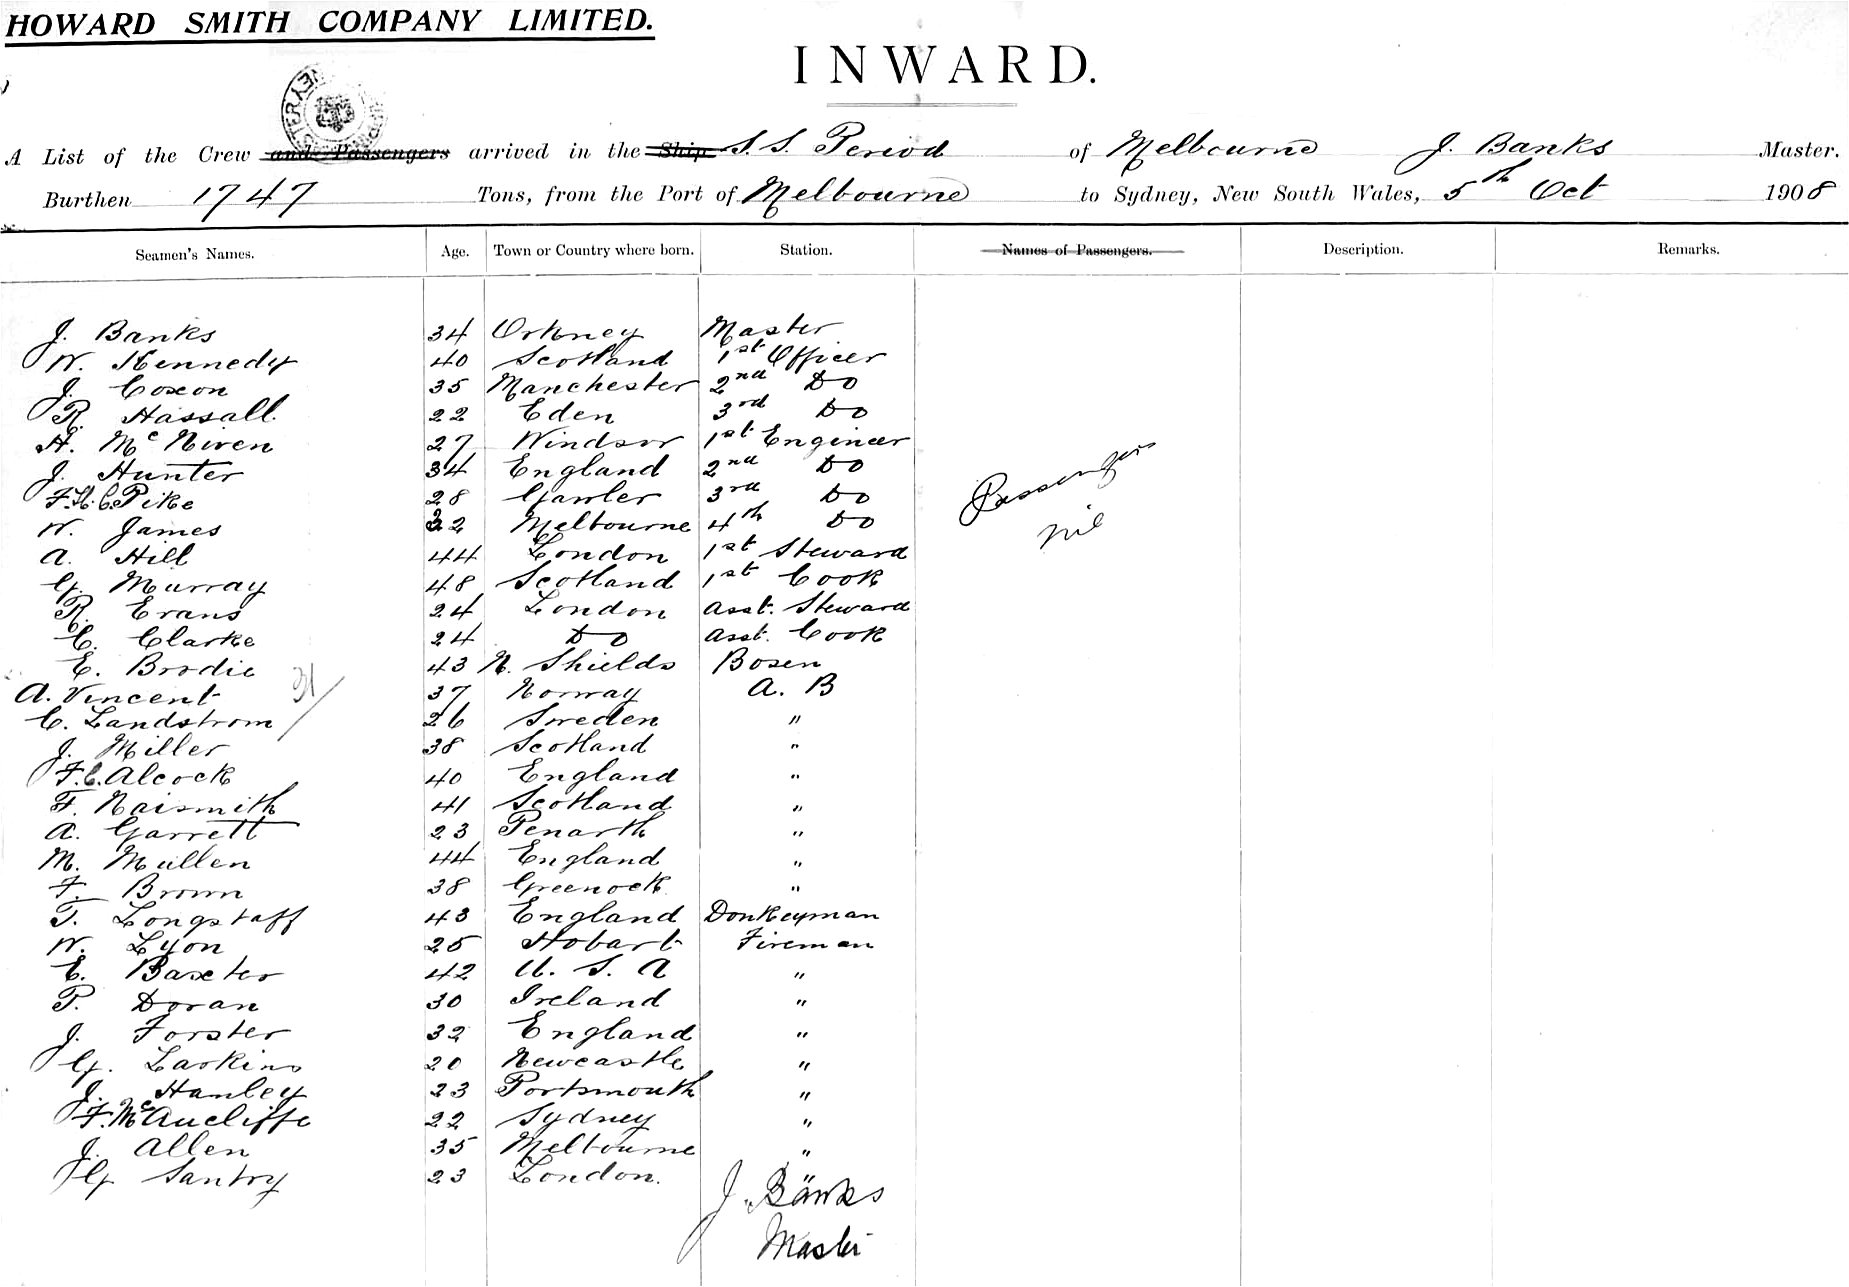 HOWARD SMITH COMPANY LIMITED.
INWARD.
A List of the Crew and Passengers arrived in the Ship S.S. Period of Melbourne J. Banks Master.
Burthen 1747 Tons, from the Port of Melbourne to Sydney, New South Wales, 5th Oct 1908
Seamen's Names. Age. Town or Country where born. Station. Names of Passengers. Description. Remarks.
J. Banks 34 Orkney Master
W. Kennedy 40 Scotland 1st Officer
J. Coxon 35 Manchester 2nd Do
R. Hassall 22 Eden 3rd Do
A. McNiven 27 Windsor 1st Engineer
J. Hunter 34 England 2nd Do
F.H.C. Pike 28 Gawler 3rd Do
W. James 22 Melbourne 4th Do
A. Hill 44 London 1st Steward
G. Murray 48 Scotland 1st Cook
R. Evans 24 London Asst. Steward
C. Clarke 24 Do Asst. Cook
E. Brodie 43 N. Shields Bosen
A. Vincent 37 Norway A. B
C. Landstrom 26 Sweden "
J. Miller 38 Scotland "
F.C. Alcock 40 England "
F. Naismith 41 Scotland "
A. Garrett 23 Penarth "
M. Mullen 44 England "
F. Brown 38 Greenock "
T. Longstaff 43 England Donkeyman
W. Lyon 25 Hobart Fireman
E. Baxter 42 U. S. A "
P. Doran 30 Ireland "
J. Forster 32 England "
G. Larkins 20 Newcastle "
J. Hanley 23 Portsmouth "
F. McAucliffe 22 Sydney "
J. Allen 35 Melbourne "
G Santry 23 London. "
Passengers
nil
31
J. Banks
Master